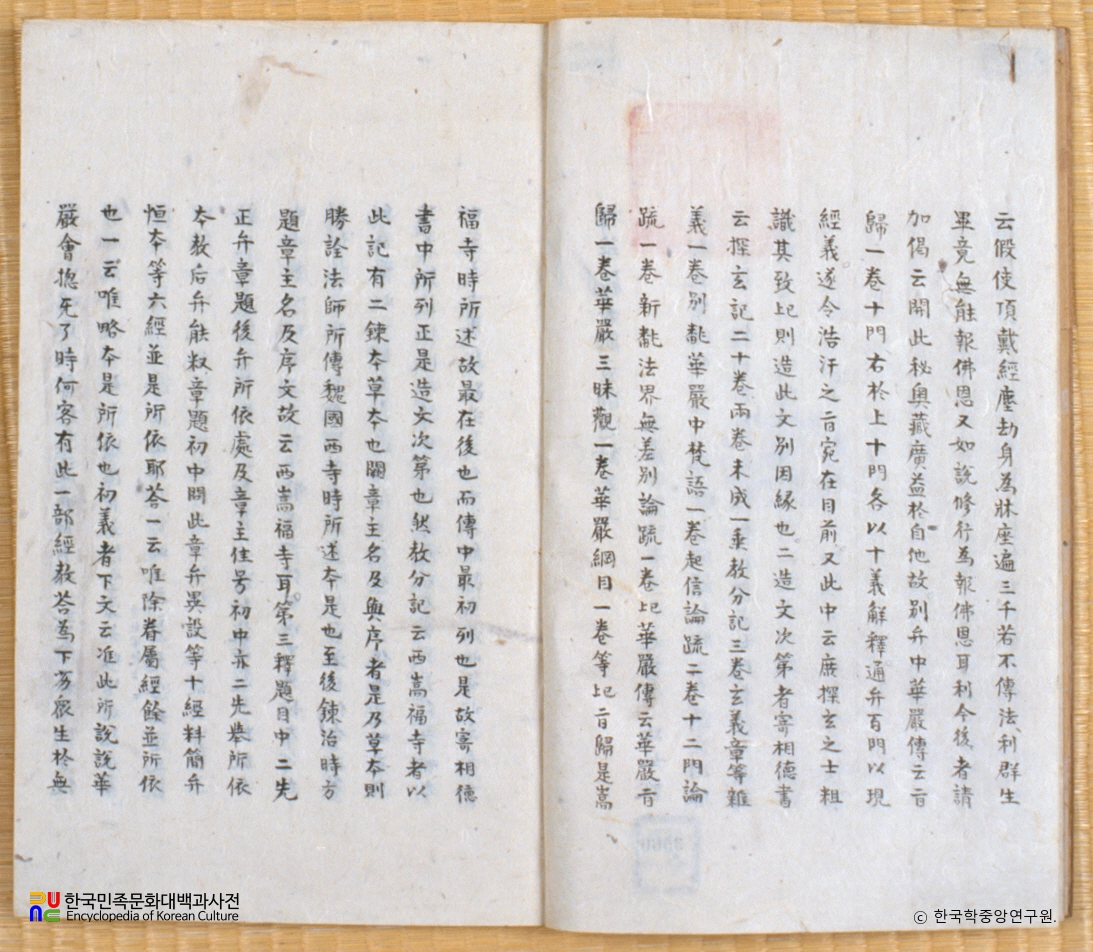 云假使頂戴經塵劫身為牀座遍三千若不傳法利群生
畢竟無能報佛恩又如說修行為報佛恩耳利今後者請
加偈云開此秘奧藏廣益於自他故別弁中華嚴傳云旨
歸一卷十門右於上十門各以十義解釋通弁百門以現
經義遂令浩汗之旨宛在目前又此中云庶探玄之士粗
識其致上已則造此文別因緣也二造文次第者寄相德書
云探玄記二十卷兩卷未成一乘教分記三卷玄義章等雜
義一卷別飜華嚴中梵語一卷起信論疏二卷十二門論
疏一卷新飜法界無差別論疏一卷上已華嚴傳云華嚴旨
歸一卷華嚴三昧觀一卷華嚴綱目一卷等上已旨歸是嵩
福寺時所述故最在後也而傳中最初列也是故寄相德
書中所列正是造文次第也然教分記云西嵩福寺者以
此記有二鍊本草本也闕章主名及與序者是乃草本則
勝詮法師所傳魏國西寺時所述本是也至後鍊治時方
題章主名及序文故云西嵩福寺耳第三釋題目中二先
正弁章題後弁所依處及章主住号初中亦二先舉所依
本教后弁能釈章題初中問此章弁異設等十經料簡弁
恒本等六經並是所依耶答一云唯除眷屬經餘並所依
也一云唯略本是所依也初義者下文云准此所說說華
嚴會揔无了時何容有此一部經教答為下劣衆生於無
한국민족문화대백과사전
Encyclopedia of Korean Culture
© 한국학중앙연구원.